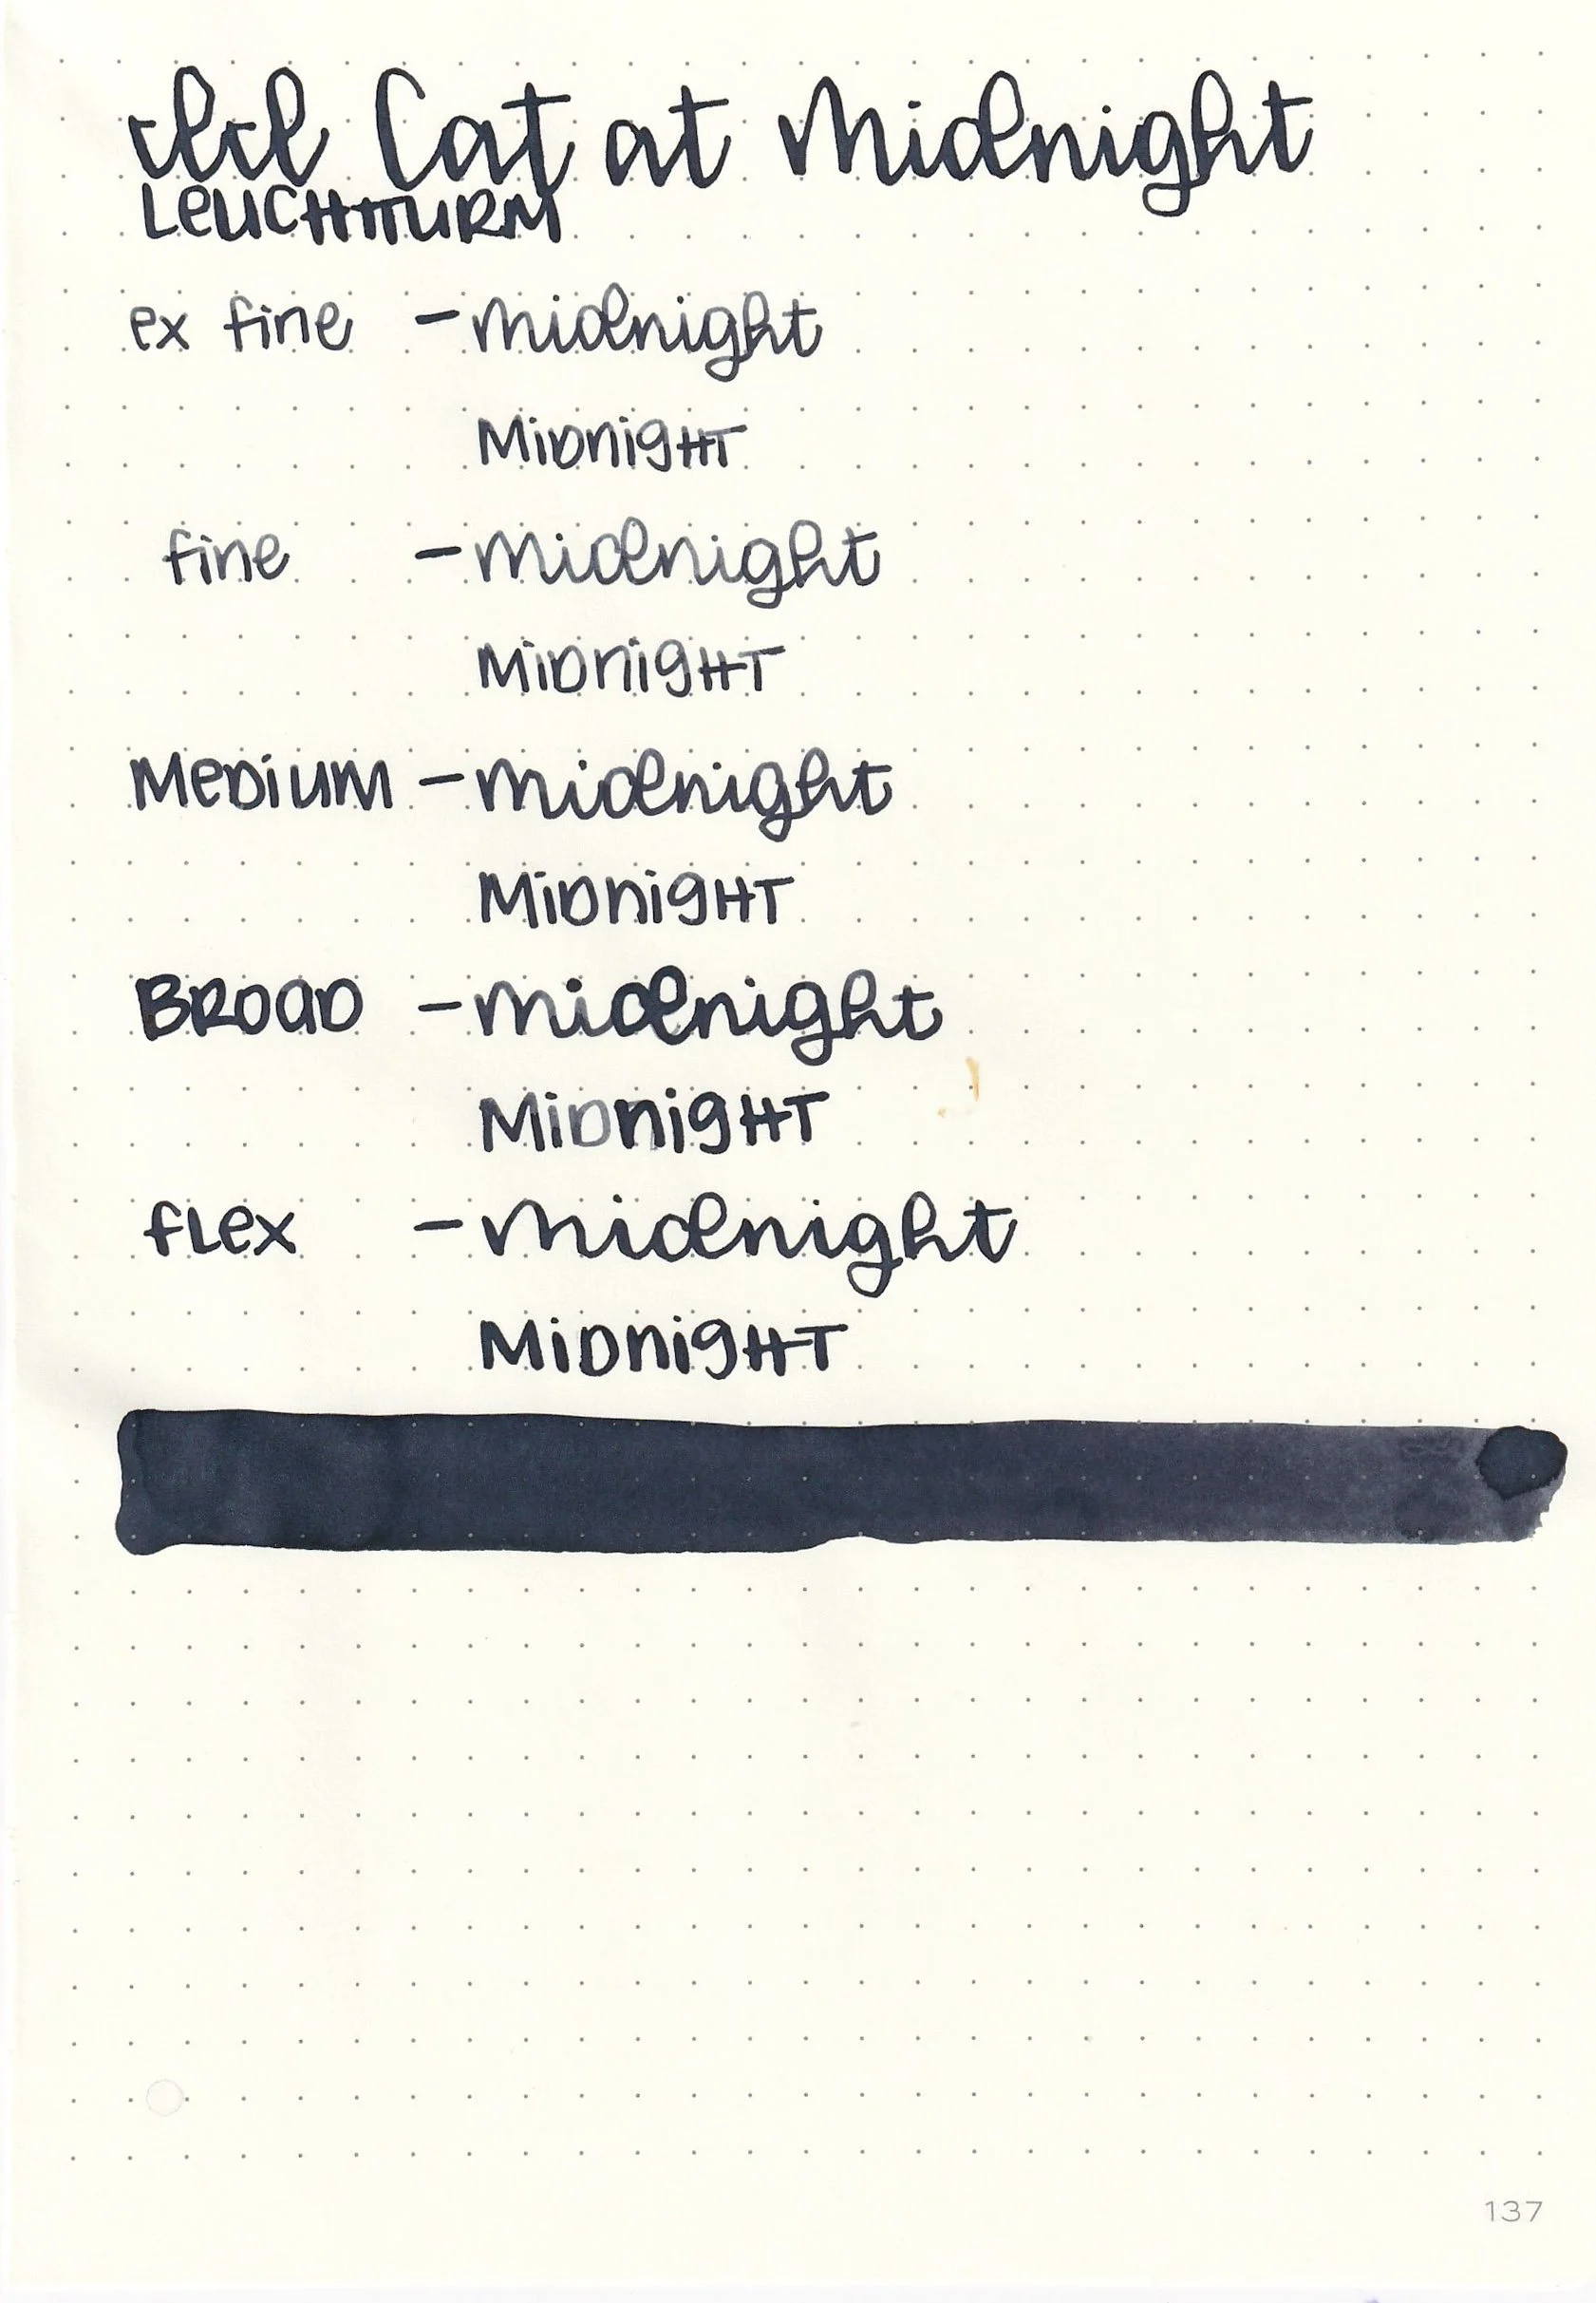 Cat at Midnight
LeucHtTuRM
ex fine - midnight
MiDnigHT
fine - midnight
MiDnigHT
MeDiuM - midnight
MiDnigHT
BRoaD - midnight
MiDnigHT
fLex - midnight
MiDnigHT
137